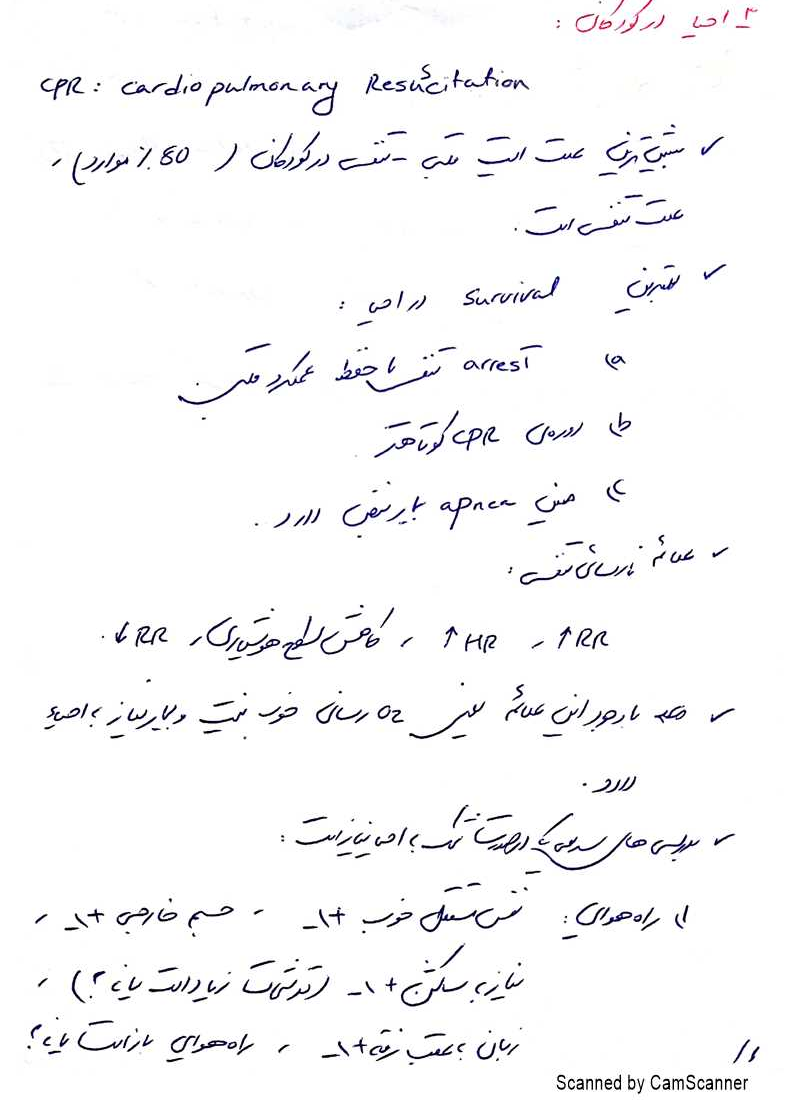 ۳ـ احیا در کودکان:
CPR: Cardiopulmonary Resucitation
✓ بیشترین علت ایست قلبی - تنفسی در کودکان (80٪ موارد)،
علت تنفسی است.
✓ بهترین Survival در احیا:
a) arrest تنفسی با حفظ عملکرد قلب
b) دوره‌ی CPR کوتاهتر
c) حین apnea بیمار نبض دارد.
✓ علائم نارسائی تنفسی:
↑RR ، ↑HR ، کاهش سطح هوشیاری، ↓RR.
✓ با وجود این علائم یعنی O2 رسانی خوب نیست و بیمار نیاز به احیاء
دارد.
✓ بررسی های سریع که در صورت شک به احیا نیاز است:
۱) راه هوایی: تنفس مستقل خوب +\- ، جسم خارجی +\- ،
نیاز به ساکشن +\- (ترشحات زیاد است یا نه؟) ،
زبان به عقب رفته +\- ، راه هوایی باز است یا نه؟
Scanned by CamScanner